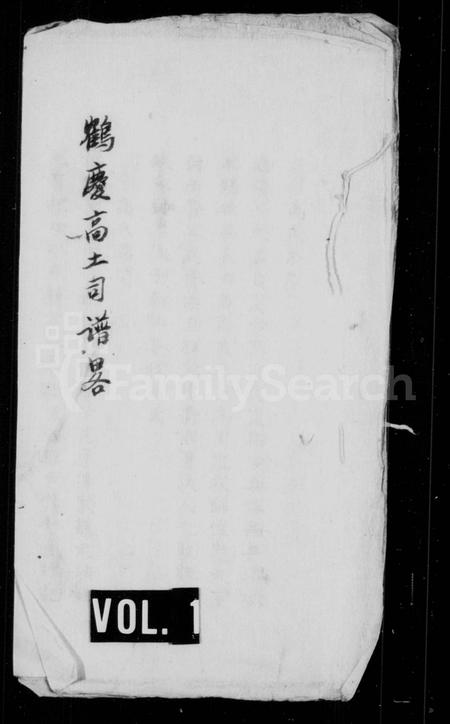 鶴慶高土司譜畧
FamilySearch
VOL. 1